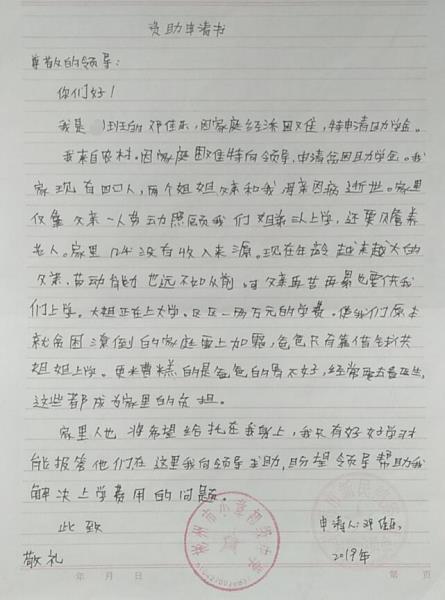 资助申请书
尊敬的领导:
你们好!
我是 班的邓佳乐,因家庭经济困难,特申请助学金。
我来自农村,因家庭困难特向领导,申请贫困助学金。我
家现有四口人,两个姐姐父亲和我,母亲因病逝世。家里
仅靠父亲一人劳动照顾我们姐弟三人上学,还要赡养
老人。家里几乎没有收入来源。现在年龄越来越大的
父亲,劳动能力也远不如从前,可父亲再苦再累也要供我
们上学。大姐正在上大学,区区一两万元的学费,使我们原本
就贫困潦倒的家庭雪上加霜,爸爸只有靠借钱供
姐姐上学。更糟糕的是爸爸的胃不好,经常要去看医生,
这些都成为家里的负担。
家里人也将希望给托在我身上,我只有好好学习才
能报答他们在这里我向领导求助,盼望领导帮助我
解决上学费用的问题。
此致 申请人:邓佳乐
敬礼 2019年
年 月 日 第 页